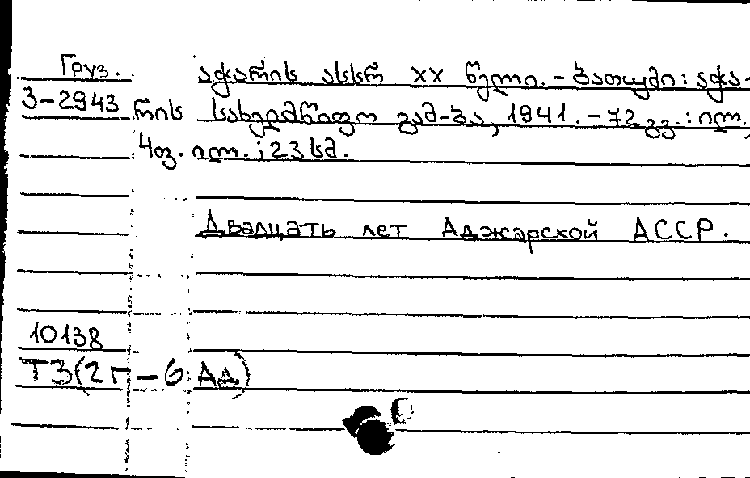 Груз.
აჭარის ასსრ XX წელი. – ბათუმი : აჭა-
3-2943 რის სახელმწიფო გამ-ბა, 1941. – 72 გვ. : ილ.,
4 ფ. ილ. ; 23 სმ.
Двадцать лет Аджарской АССР.
10138
Т3(2Г–6Ад)